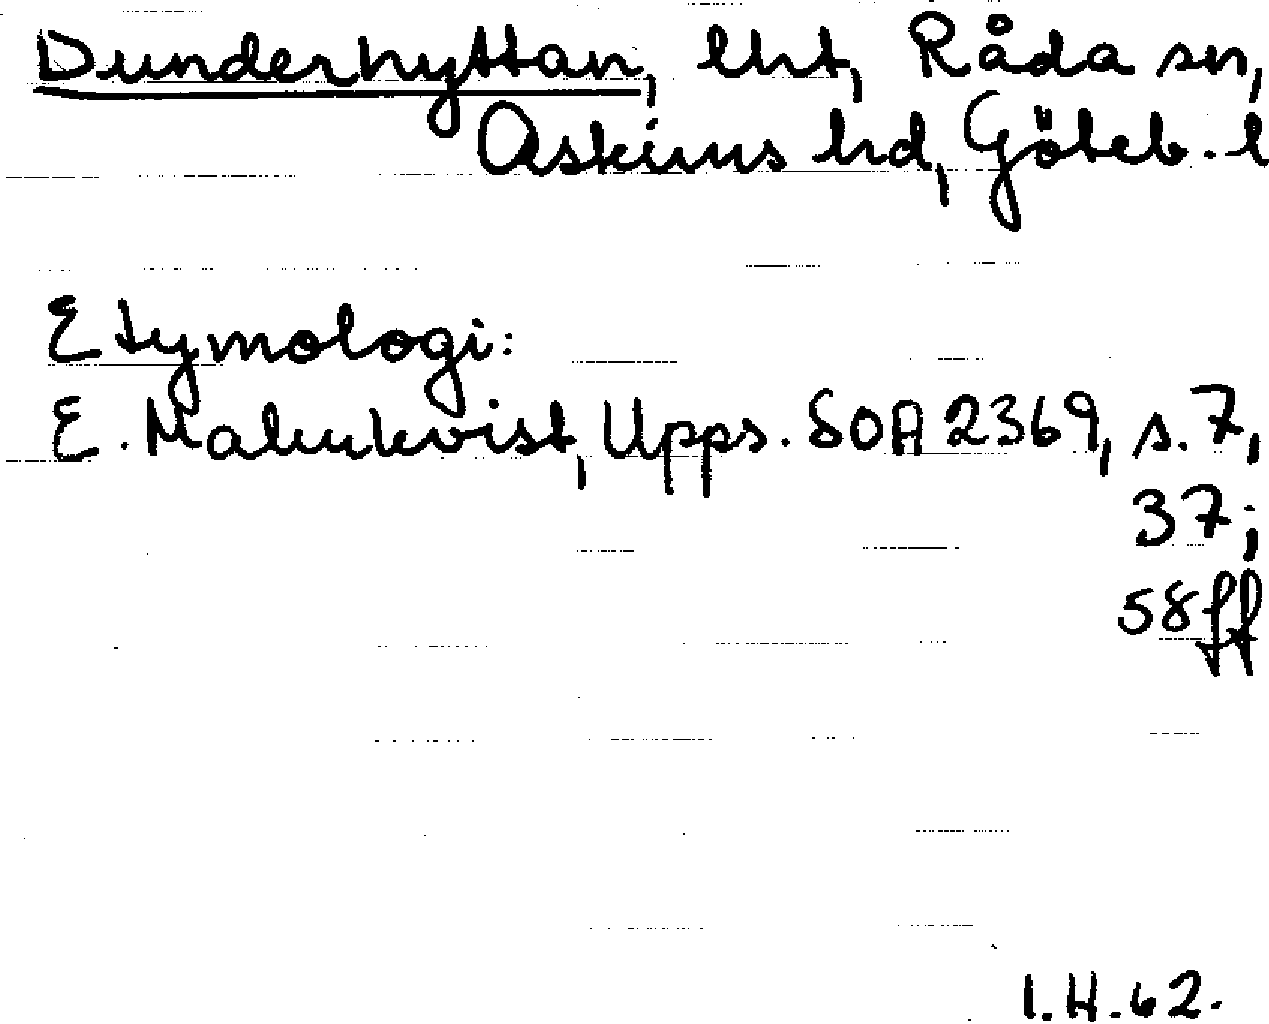 Dunderhyttan, lht, Råda sn,
Askims hd, Göteb. l
Etymologi:
E. Malmkvist, Upps. SOA 2369, s. 7,
37;
58 ff
I.H.62.